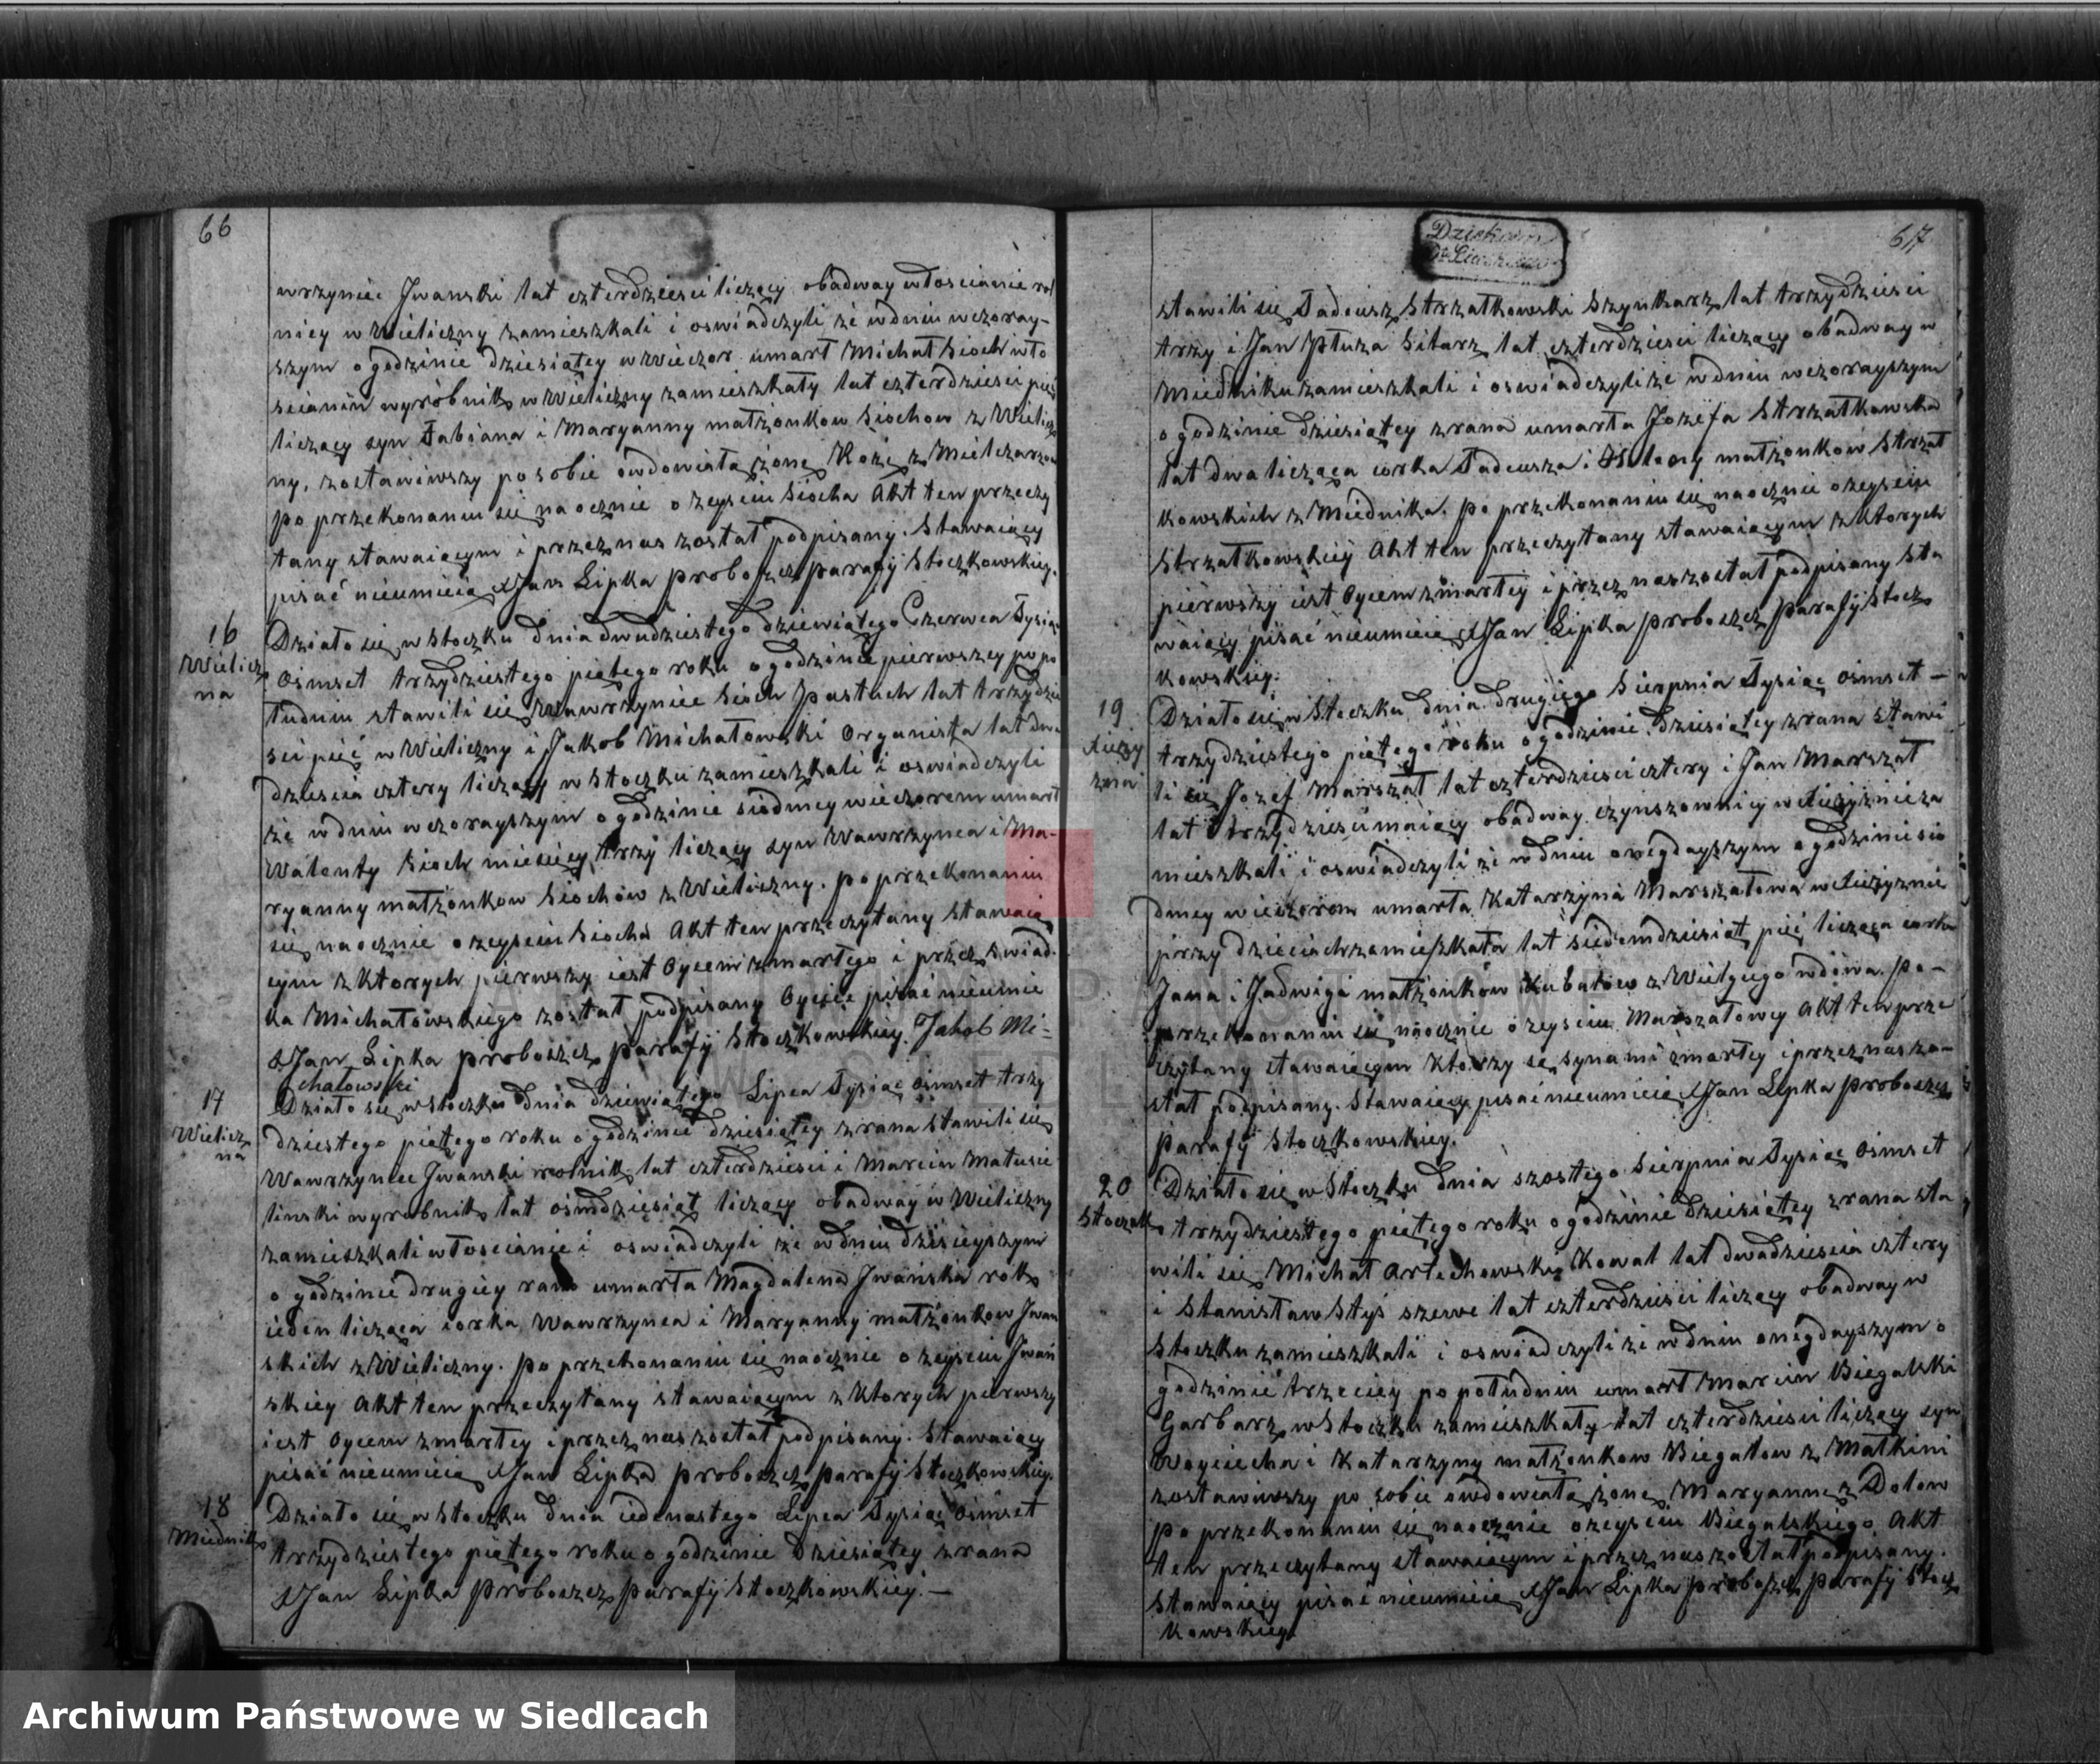 66
wrzyniec Jwanski lat czterdziesci liczący obadway włoscianie rol
nicy w Wieliczny zamieszkali i oswiadczyli że w dniu wczoray-
szym o godzinie dziesiątey w wieczor umarł Michał Sioch wło
scianin wyrobnik w Wieliczny zamieszkały lat czterdziesci pięć
liczący syn Fabiana i Maryanny małżonkow Siochow z Wielicz
ny, zostawiwszy po sobie owdowiałą żonę Rożę z Mielczarzow
po przekonaniu się naocznie o zeysciu Siocha Akt ten przeczy
tany stawaiącym i przez nas został podpisany. Stawaiący
pisać nieumieią XJan Lipka Proboszcz Parafij Stoczkowskiey.
16
Wielicz
na
Działo się w Stoczku dnia dwudziestego dziewiątego Czerwca Tysiąc
osmset trzydziestego piątego roku o godzinie pierwszey po po
łudniu stawili się Wawrzyniec Sioch Pastuch lat trzydzie
sci pięć w Wieliczny i Jakob Michałowski Organista lat dwa
dziescia cztery liczący w Stoczku zamieszkali i oswiadczyli
że w dniu wczorayszym o godzinie siodmey wieczorem umarł
Walenty Sioch miesięcy trzy liczący syn Wawrzynca i Ma-
ryanny małżonkow Siochów z Wieliczny. po przekonaniu
się naocznie o zeysciu Siocha Akt ten przeczytany stawaią
cym z ktorych pierwszy iest Oycem zmarłego i przez swiad-
ka Michałowskiego został podpisany Oyciec pisać nieumie
XJan Lipka Proboszcz Parafij Stoczkowskiey. Jakob Mi=
chałowski
17
Wielicz
na
Działo się w Stoczku dnia dziewiątego Lipca Tysiąc osmset trzy
dziestego piątego roku o godzinie dziesiątey zrana stawili się
Wawrzyniec Jwanski rolnik lat czterdziesci i Marcin Matusie
linski wyrobnik lat ośmdziesiąt liczący obadway w Wieliczny
zamieszkali włoscianie i oswiadczyli że w dniu dzisieyszym
o godzinie drugiey rano umarła Magdalena Jwańska rok
ieden licząca corka Wawrzynca i Maryanny małżonkow Jwan
skich z Wieliczny. po przekonaniu się naocznie o zeysciu Jwań
skiey Akt ten przeczytany stawaiącym z ktorych pierwszy
iest Oycem zmarłey i przez nas został podpisany. Stawaiący
pisać nieumieią XJan Lipka Proboszcz Parafij Stoczkowskiey.
18
Miednik
Działo się w Stoczku dnia iedenastego Lipca Tysiąc osmset
trzydziestego piątego roku o godzinie dziesiątey zrana
XJan Lipka Proboszcz Parafij Stoczkowskiey. —
67
stawili się Tadeusz Strzałkowski Szynkarz lat trzydziesci
trzy i Jan Płuza Sitarz lat czterdziesci liczący obadway w
Miedniku zamieszkali i oswiadczyli że w dniu wczorayszym
o godzinie dziesiątey zrana umarła Jozefa Strzałkowska
lat dwa licząca corka Tadeusza i Heleny małżonkow Strzał
kowskich z Miednika. po przekonaniu się naocznie o zeysciu
Strzałkowskiey Akt ten przeczytany stawaiącym z ktorych
pierwszy iest Oycem zmarłey i przez nas został podpisany Sta
waiący pisać nieumieią XJan Lipka Proboszcz Parafij Stocz
kowskiey.
19
Działo się w Stoczku dnia drugiego Sierpnia Tysiąc osmset —
trzydziestego piątego roku o godzinie dziesiątey zrana stawi
li się Jozef Marszał lat czterdziesci cztery i Jan Marszał
lat trzydziesci maiący obadway czynszownicy w
mieszkali i oswiadczyli że w dniu onegdayszym o godzinie sio
dmey wieczorem umarła Katarzyna Marszałowa w
przy dzieciach zamieszkała lat siedemdziesiąt pięć licząca corka
Jana i Jadwigi małżonków Kubatow z Wielgiego wdowa. po-
przekonaniu się naocznie o zeysciu Marszałowey Akt ten prze
czytany stawaiącym ktorzy są synami zmarłey i przez nas zo-
stał podpisany. Stawaiący pisać nieumieią XJan Lipka Proboszcz
Parafij Stoczkowskiey.
20
Stoczek
Działo się w Stoczku dnia szostego Sierpnia Tysiąc osmset
trzydziestego piątego roku o godzinie dziesiątey zrana sta
wili się Michał Artechowski Kowal lat dwadziescia cztery
i Stanisław Styś szewc lat czterdziesci liczący obadway w
Stoczku zamieszkali i oswiadczyli że w dniu onegdayszym o
godzinie trzeciey po południu umarł Marcin Biegalski
Garbarz w Stoczku zamieszkały lat czterdziesci liczący syn
Woyciecha i Katarzyny małżonkow Biegałow z Małkini
zostawiwszy po sobie owdowiałą żonę Maryannę z Dołow
po przekonaniu się naocznie o zeysciu Biegalskiego Akt
ten przeczytany stawaiącym i przez nas został podpisany.
Stawaiący pisać nieumieią XJan Lipka Proboszcz Parafij Stocz
kowskiey.
Archiwum Państwowe w Siedlcach